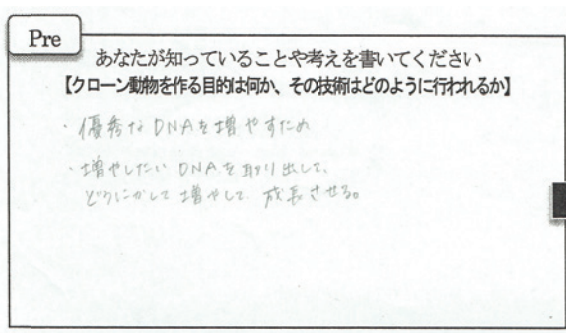 Pre
あなたが知っていることや考えを書いてください
【クローン動物を作る目的は何か、その技術はどのように行われるか】
・優秀なDNAを増やすため
・増やしたいDNAを取り出して、
どうにかして増やして、成長させる。